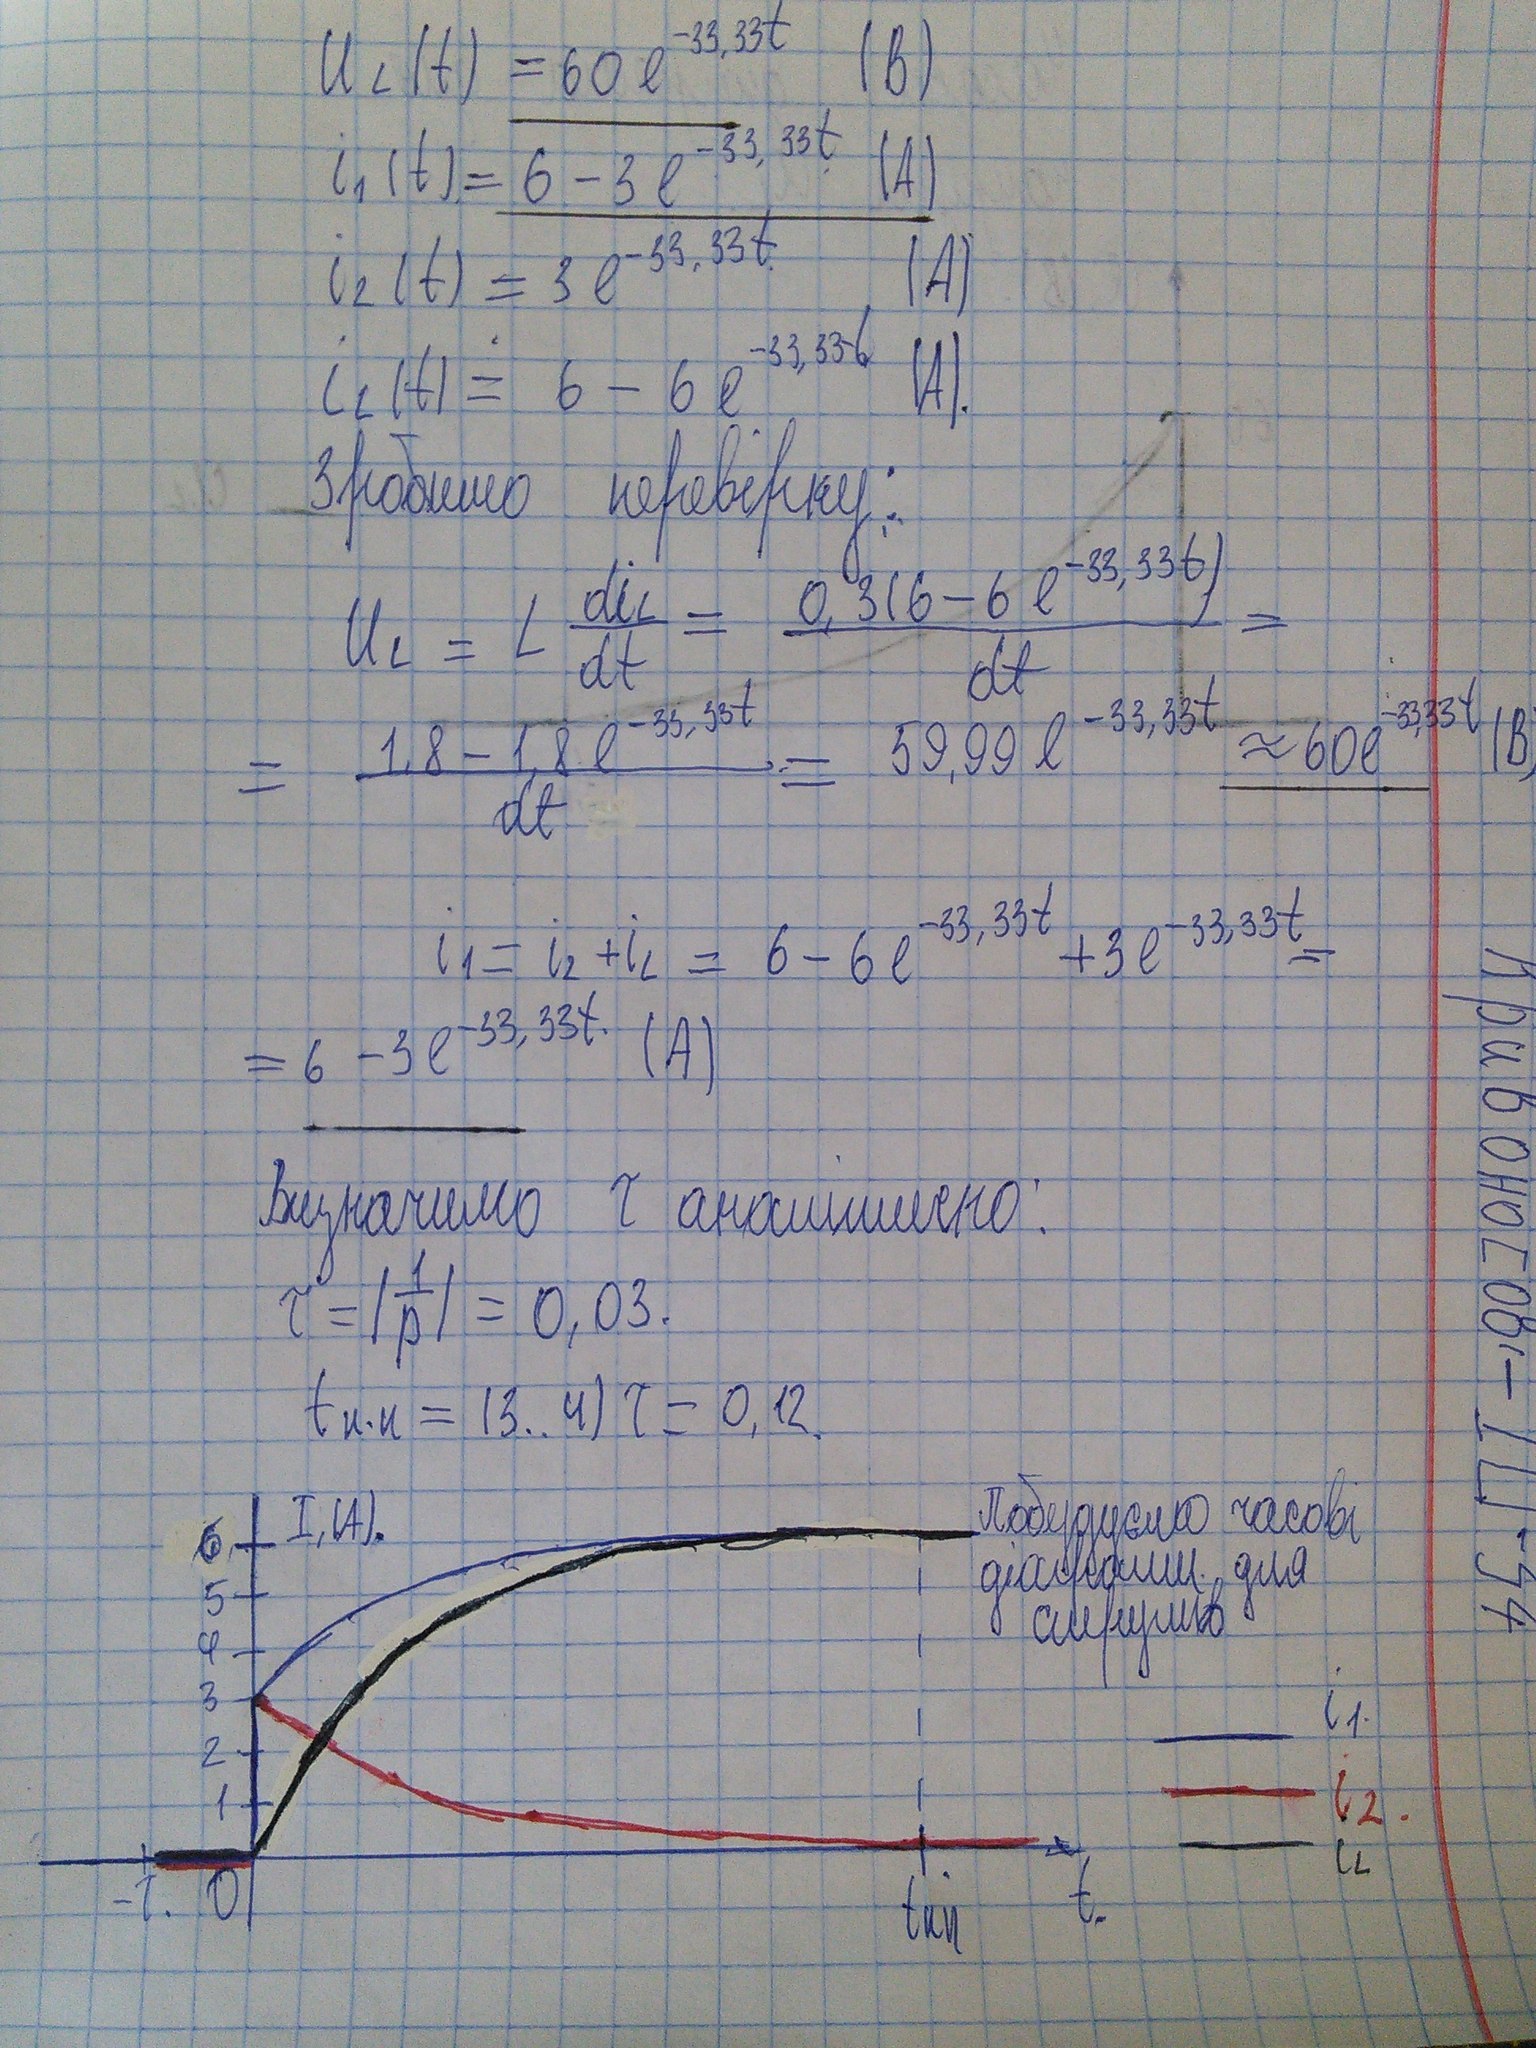 U_L(t) = 60e^{-33,33t} (В)
i_1(t) = 6 - 3e^{-33,33t} (А)
i_2(t) = 3e^{-33,33t} (А)
i_L(t) = 6 - 6e^{-33,33t} (А).
Зробимо перевірку:
U_L = L di_L/dt = 0,3(6 - 6e^{-33,33t})/dt =
= 1,8 - 1,8e^{-33,33t}/dt = 59,99e^{-33,33t} ≈ 60e^{-33,33t} (В)
i_1 = i_2 + i_L = 6 - 6e^{-33,33t} + 3e^{-33,33t} =
= 6 - 3e^{-33,33t} (А)
Визначимо τ аналітично:
τ = |1/p| = 0,03.
t п.п = (3..4)τ = 0,12.
I,(А).
6
5
4
3
2
1
-τ. 0
t пп
t.
Побудуємо часові
діаграми для
струмів
i_1.
i_2.
i_L
Кривоносов,-ІП-94